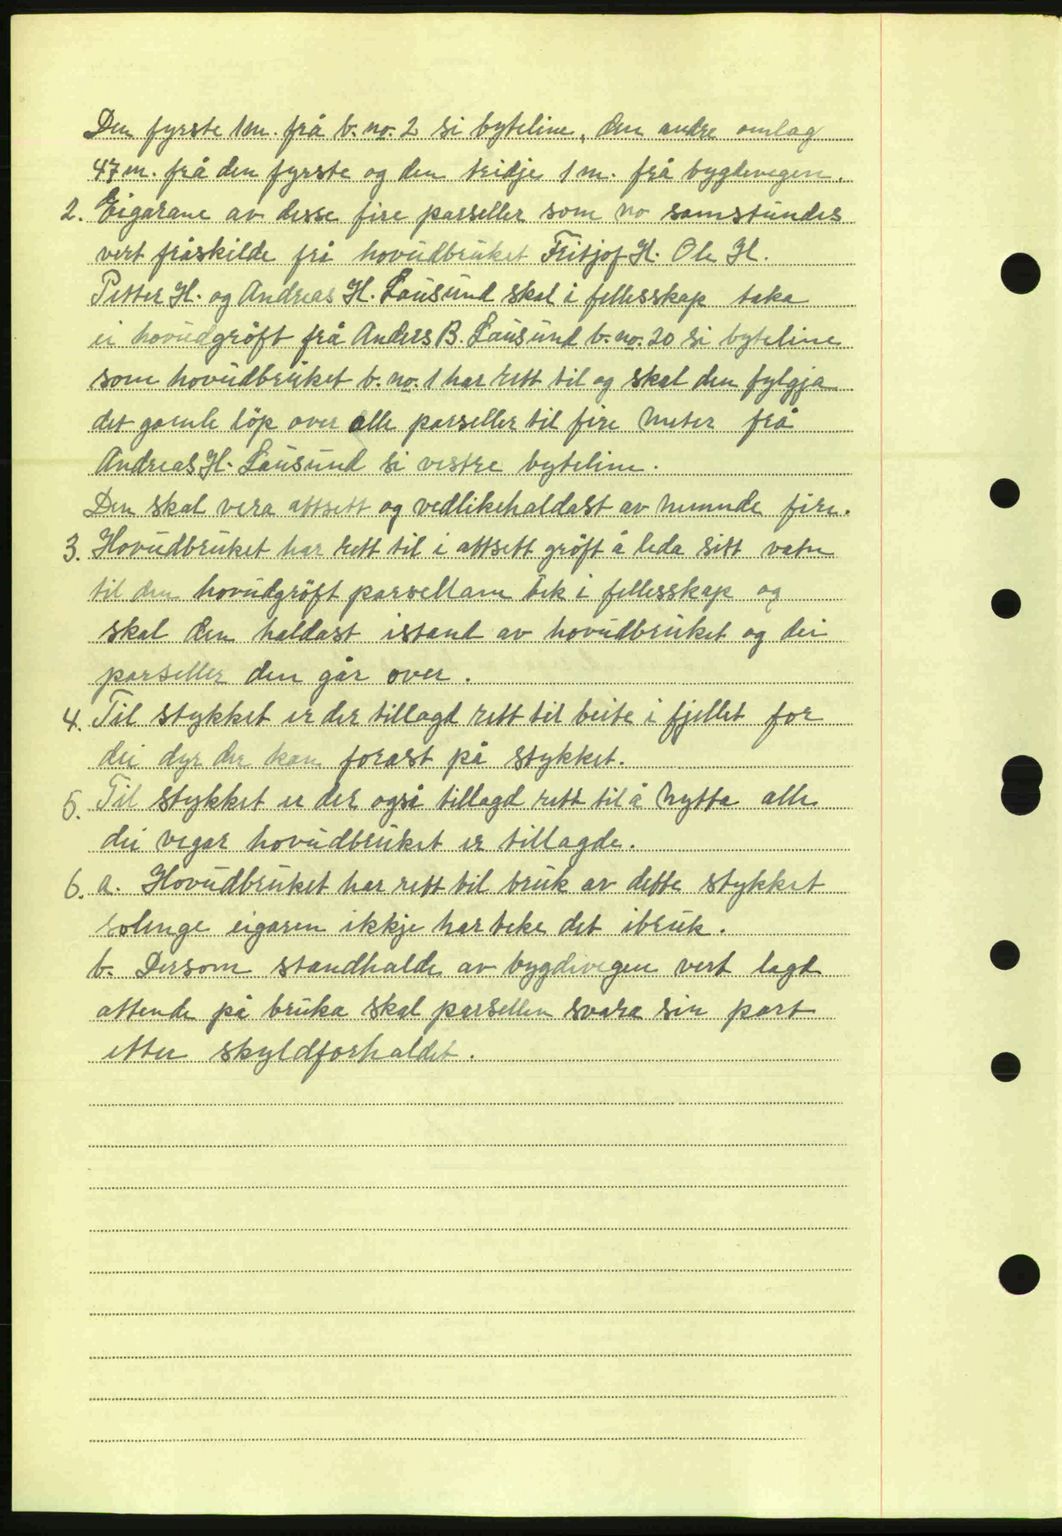 Den fyrste 1m. frå b.no. 2 si byteline, den andre omlag
47m. frå den fyrste og den tridje 1m. frå bygdevegen.
2. Eigarane av desse fire parseller som no samstundes
vert fråskilde frå hovudbruket Fritjof H. Ole H.
Petter H. og Andreas H. Lausund skal i fellesskap taka
ei hovudgröft frå Anders B. Lausund b.no. 20 si byteline
som hovudbruket b.no. 1 har rett til og skal den fylgja
det gamle löp over alle parseller til fire meter frå
Andreas H. Lausund si vestre byteline.
Den skal vera attsett og vedlikehaldast av nemnde fire.
3. Hovudbruket har rett til i attsett gröft å leda sitt vatn
til den hovudgröft parsellane tek i fellesskap og
skal den haldast istand av hovudbruket og dei
parseller den går over.
4. Til stykket er der tillagd rett til beite i fjellet for
dei dyr der kan forast på stykket.
5. Til stykket er der også tillagd rett til å nytta alle
dei vegar hovudbruket er tillagde.
6. a. Hovudbruket har rett til bruk av dette stykket
solenge eigaren ikkje har teke det ibruk.
b. Dersom standhalde av bygdivegen vert lagd
attende på bruka skal parsellen svara sin part
etter skyldforhaldet.